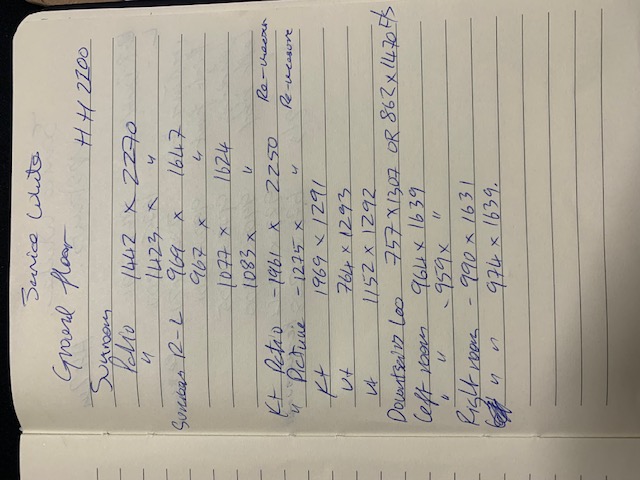 Service White
Ground floor H.H 2100
Sunroom
Patio 1442 x 2270
" 1423 x "
Sunroom R-L 969 x 1647
967 x "
1077 x 1624
1083 x "
Kt Patio - 1961 x 2250 Re-measure
" Picture - 1275 x " Re-measure
Kt 1969 x 1291
Kt 764 x 1293
Kt 1152 x 1292
Downstairs loo 757 x 1307 OR 862 x 1470 F/S
Left room 964 x 1639
" " - 959 x "
Right room - 990 x 1631
" " 974 x 1639.